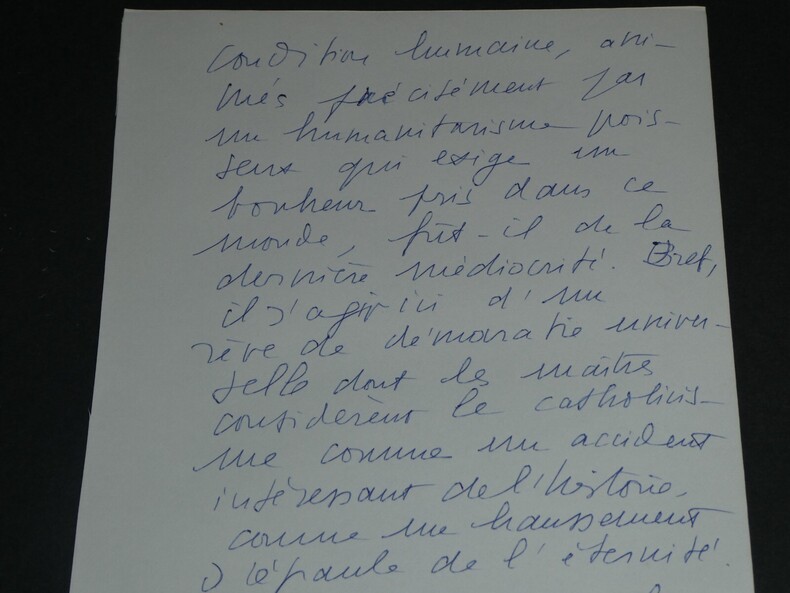 condition humaine, ani-
més précisément par
un humanitarisme pois-
seux qui exige un
bonheur pris dans ce
monde, fût-il de la
dernière médiocrité. Bref,
il s'agit ici d'un
rêve de démocratie univer-
selle dont les maîtres
considèrent le catholicis-
me comme un accident
intéressant de l'histoire,
comme un haussement
d'épaule de l'éternité.